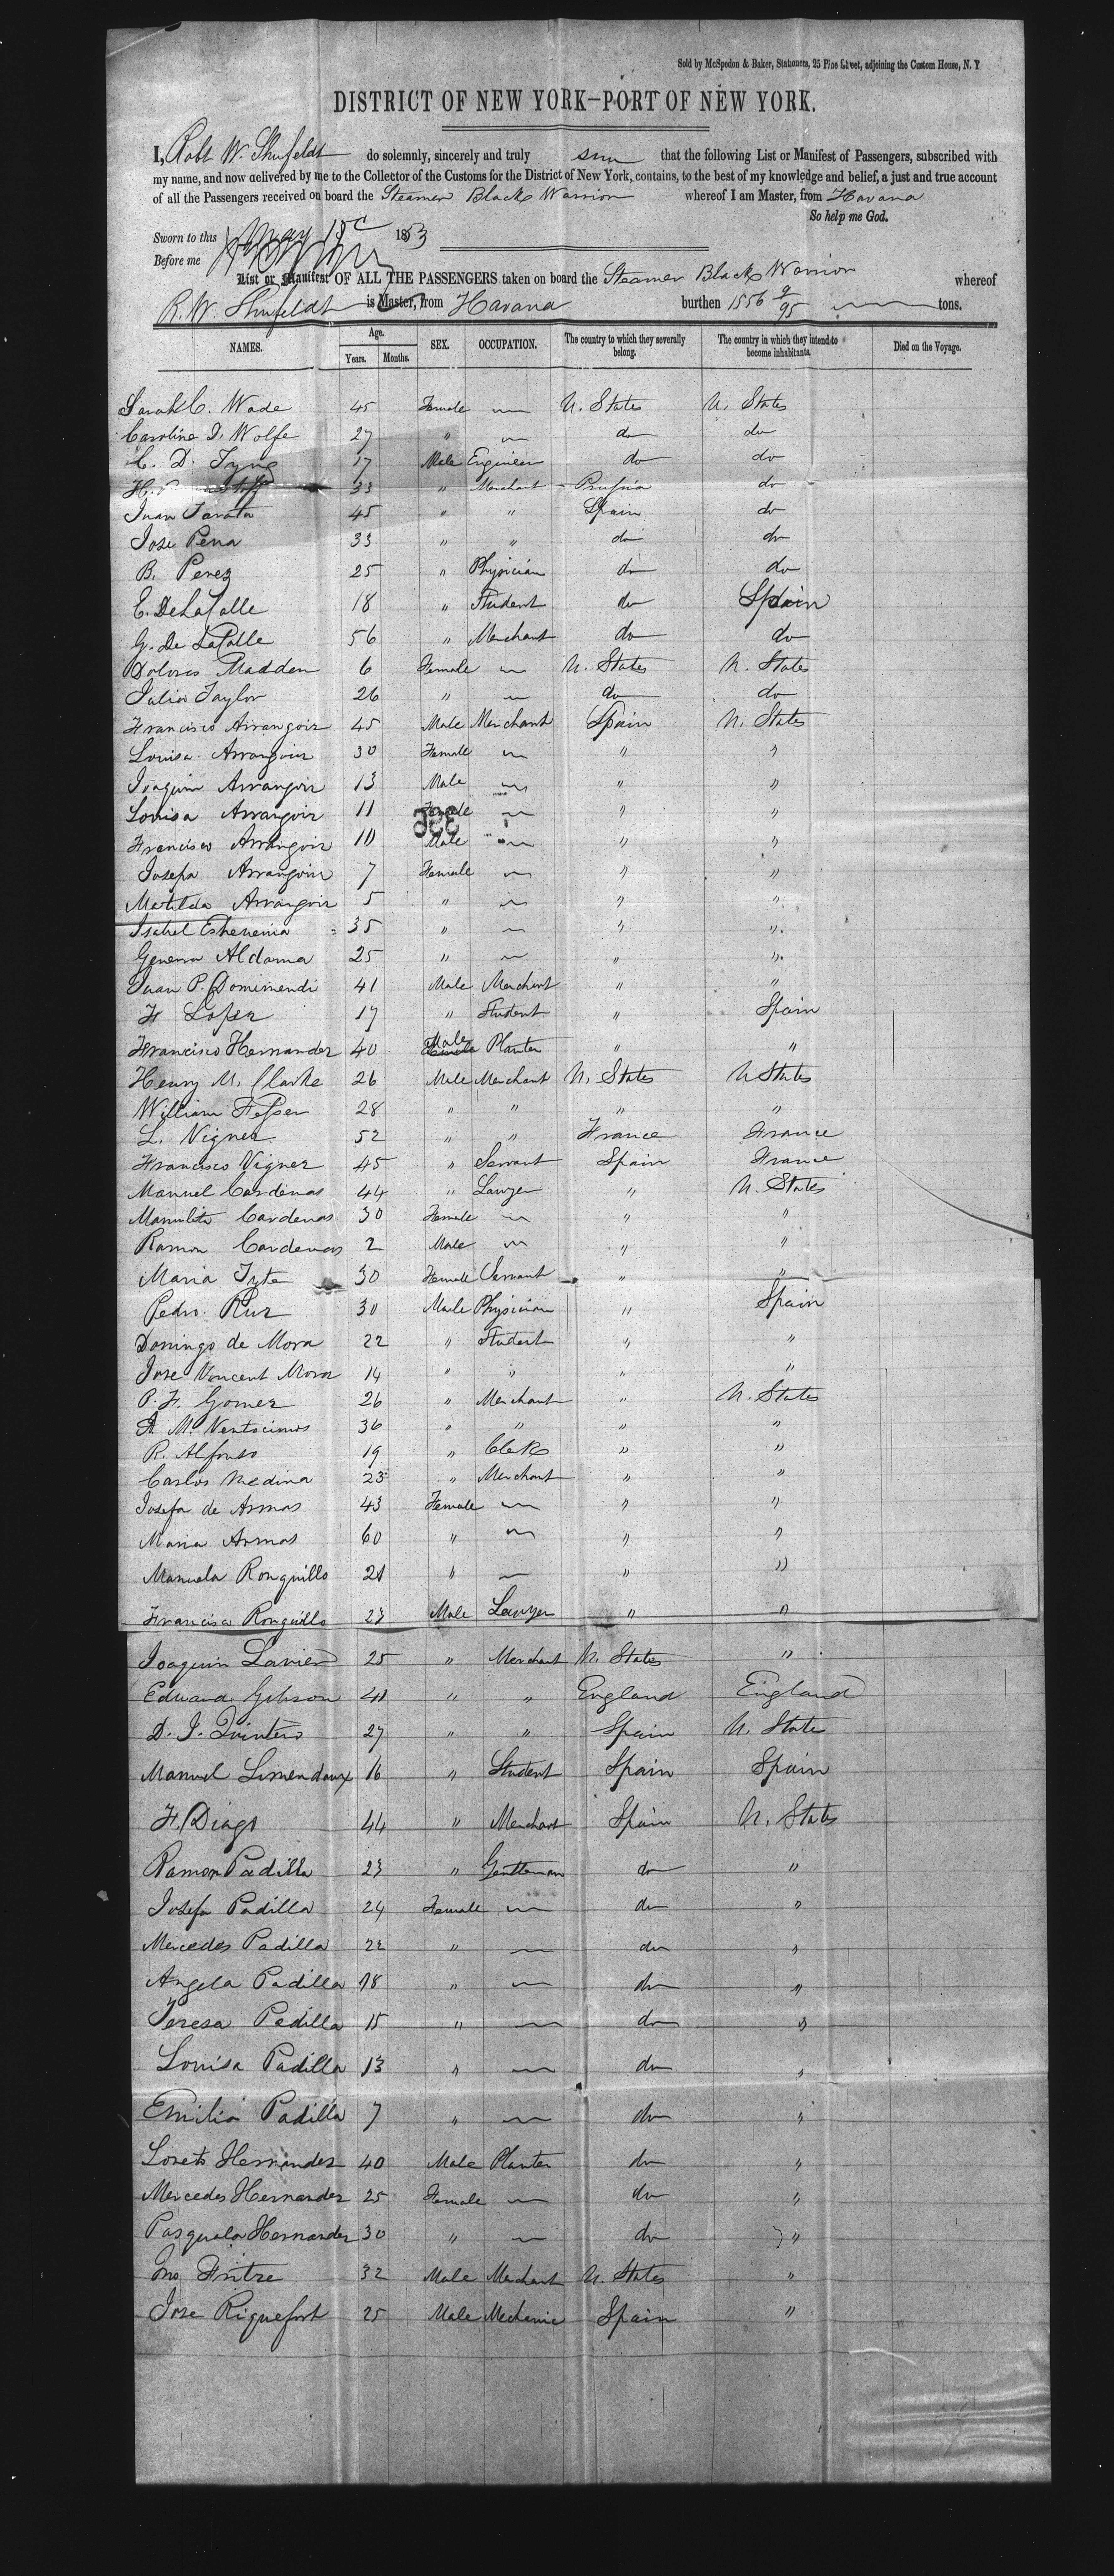 Sold by McSpedon & Baker, Stationers, 25 Pine Street, adjoining the Custom House, N. Y
DISTRICT OF NEW YORK—PORT OF NEW YORK.
I, Robt W. Shufeldt do solemnly, sincerely and truly that the following List or Manifest of Passengers, subscribed with
my name, and now delivered by me to the Collector of the Customs for the District of New York, contains, to the best of my knowledge and belief, a just and true account
of all the Passengers received on board the Steamer Black Warrior whereof I am Master, from Havana
So help me God.
Sworn to this May 1853
Before me
List or Manifest OF ALL THE PASSENGERS taken on board the Steamer Black Warrior whereof
R. W. Shufeldt is Master, from Havana burthen 1556 9/95 tons.
NAMES. Age. Years. Months. SEX. OCCUPATION. The country to which they severally belong. The country in which they intend to become inhabitants. Died on the Voyage.
Sarah C. Wade 45 Female — U. States U. States
Caroline D. Wolfe 27 " — do do
C. D. Tyng 17 Male Engineer do do
H. 33 " Merchant Prussia do
Juan Tarata 45 " " Spain do
Jose Pena 33 " " do do
B. Perez 25 " Physician do do
E. De La Calle 18 " Student do Spain
G. De La Calle 56 " Merchant do do
Dolores Madden 6 Female — U. States U. States
Julia Taylor 26 " — do do
Francisco Arrangoir 45 Male Merchant Spain U. States
Louisa Arrangoir 30 Female — " "
Joaquin Arrangoir 13 Male — " "
Louisa Arrangoir 11 Female — " "
Francisco Arrangoir 10 Male — " "
Josefa Arrangoir 7 Female — " "
Matilda Arrangoir 5 " — " "
Isabel 35 " — " "
Genera Aldama 25 " — " "
Juan P. 41 Male Merchant " "
F Lopez 17 " Student " Spain
Francisco Hernandez 40 Male Planter " "
Henry M. Clarke 26 Male Merchant U. States U States
William 28 " " " "
L. Vigner 52 " " France France
Francisco Vigner 45 " Servant Spain France
Manuel Cardenas 44 " Lawyer " U. States
Manulita Cardenas 30 Female — " "
Ramon Cardenas 2 Male — " "
Maria 30 Female Servant " "
Pedro Ruz 30 Male Physician " Spain
Domingo de Mora 22 " Student " "
Jose Vincent Mora 14 " " " "
P. F. Gomez 26 " Merchant " U. States
A. M. Ventocimos 36 " " " "
R. Alfonso 19 " Clerk " "
Carlos Medina 23 " Merchant " "
Josefa de Armas 43 Female — " "
Maria Armas 60 " — " "
Manuela Ronquillo 21 " — " "
Francisco Ronquillo 23 Male Lawyer " "
Joaquin Lavien 25 " Merchant U. States "
Edward Gibson 41 " " England England
D. J. Quintero 27 " " Spain U. State
Manuel 16 " Student Spain Spain
F. Diago 44 " Merchant Spain U. States
Ramon Padilla 23 " Gentleman do "
Josefa Padilla 24 Female — do "
Mercedes Padilla 22 " — do "
Angela Padilla 18 " — do "
Teresa Padilla 15 " — do "
Louisa Padilla 13 " — do "
Emilia Padilla 7 " — do "
Loreto Hernandez 40 Male Planter do "
Mercedes Hernandez 25 Female — do "
Pasquala Hernandez 30 " — do "
Jno Fritze 32 Male Merchant U. States "
Jose Riquefort 25 Male Mechanic Spain "